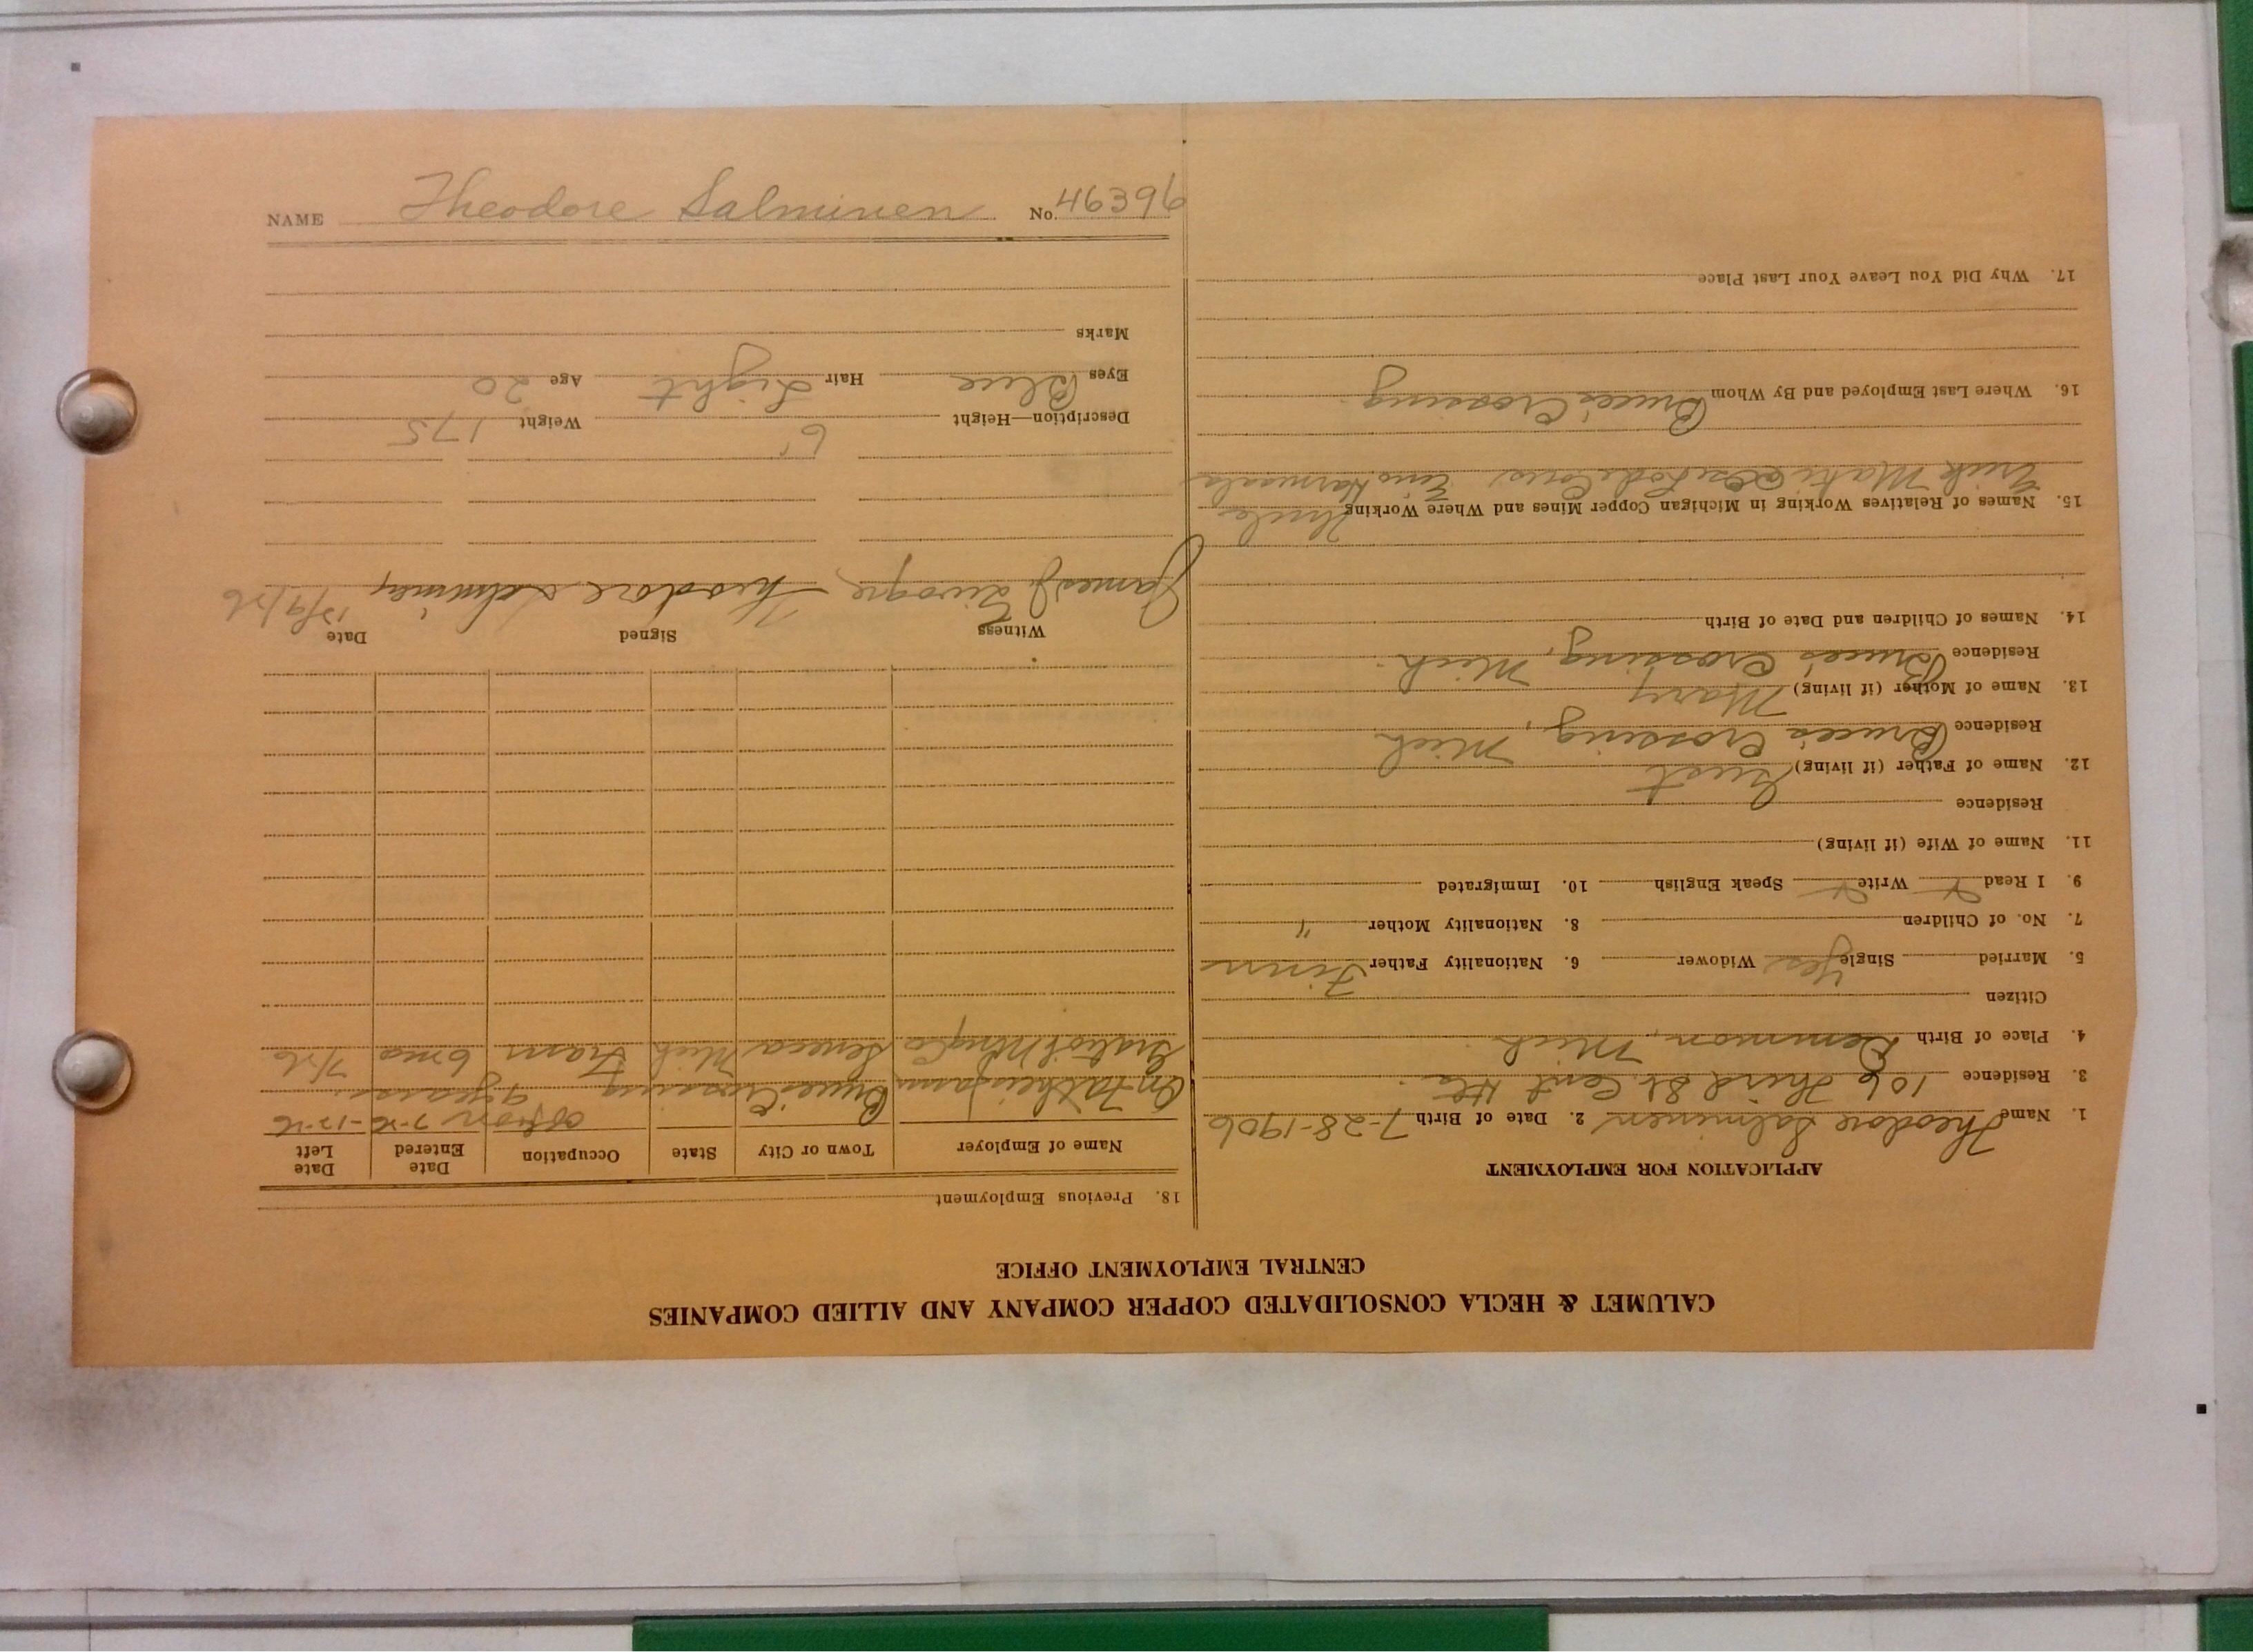 NAME Theodore Salminen No. 46396
CALUMET & HECLA CONSOLIDATED COPPER COMPANY AND ALLIED COMPANIES
CENTRAL EMPLOYMENT OFFICE
APPLICATION FOR EMPLOYMENT
1. Name Theodore Salminen 2. Date of Birth 7-28-1906
3. Residence 106 Third St. Cent Hts.
4. Place of Birth Demmon, Mich.
Citizen
5. Married Single Yes Widower 6. Nationality Father Finn
7. No. of Children 8. Nationality Mother "
9. I Read x Write x Speak English 10. Immigrated
11. Name of Wife (if living)
Residence
12. Name of Father (if living) Gust
Residence Bruce's Crossing, Mich
13. Name of Mother (if living) Mary
Residence Bruce's Crossing, Mich.
14. Names of Children and Date of Birth
15. Names of Relatives Working in Michigan Copper Mines and Where Working Uncle
Erick Maki Eino
16. Where Last Employed and By Whom Bruce's Crossing
17. Why Did You Leave Your Last Place
18. Previous Employment
Name of Employer Town or City State Occupation Date Entered Date Left
7-26 -12-26
On Father's farm Bruce's Crossing 9 years.
Gratiot Mng Co Seneca Mich Tram 6 mo 7/26
Witness Signed Date
James J. Theodore Salminen 12/9/26
Description—Height 6' Weight 175
Eyes Blue Hair Light Age 20
Marks